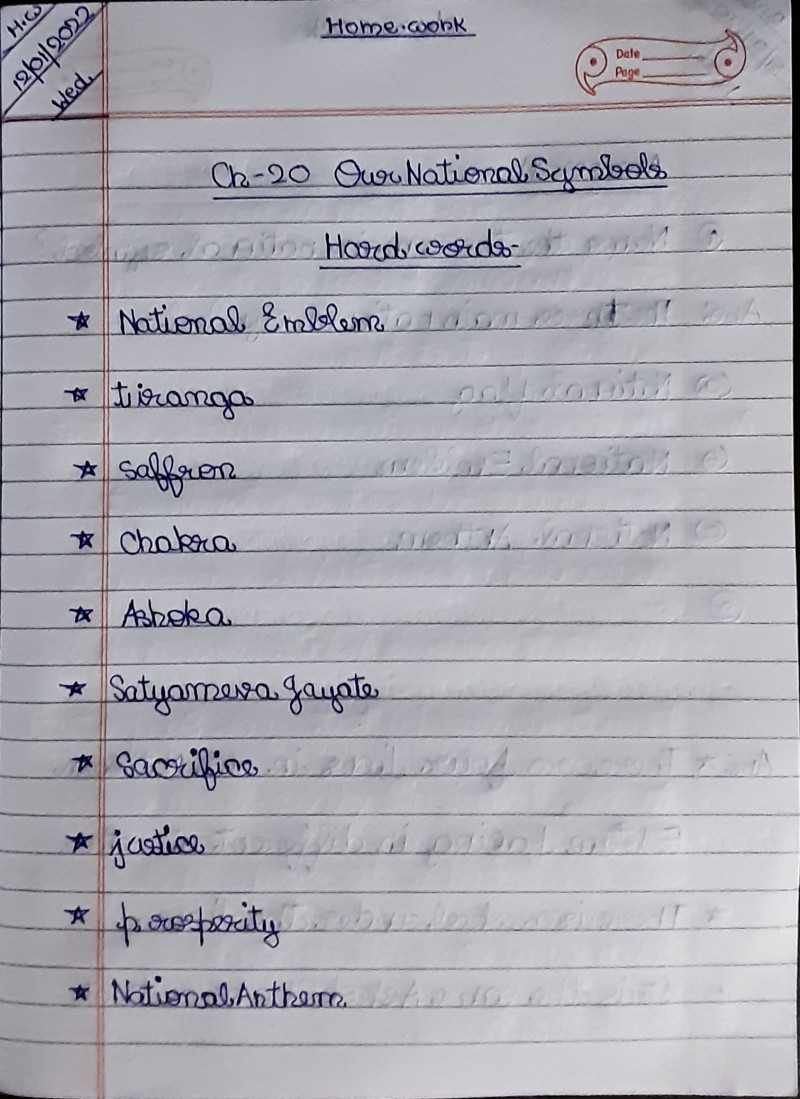 H.W
12/01/2022
Wed.
Home.work
Date
Page
Ch-20 Our National Symbols
Hard words-
★ National Emblem
★ tiranga
★ Saffron
★ Chakra
★ Ashoka
★ Satyameva jayate
★ Sacrifice
★ justice
★ prosperity
★ National Anthem